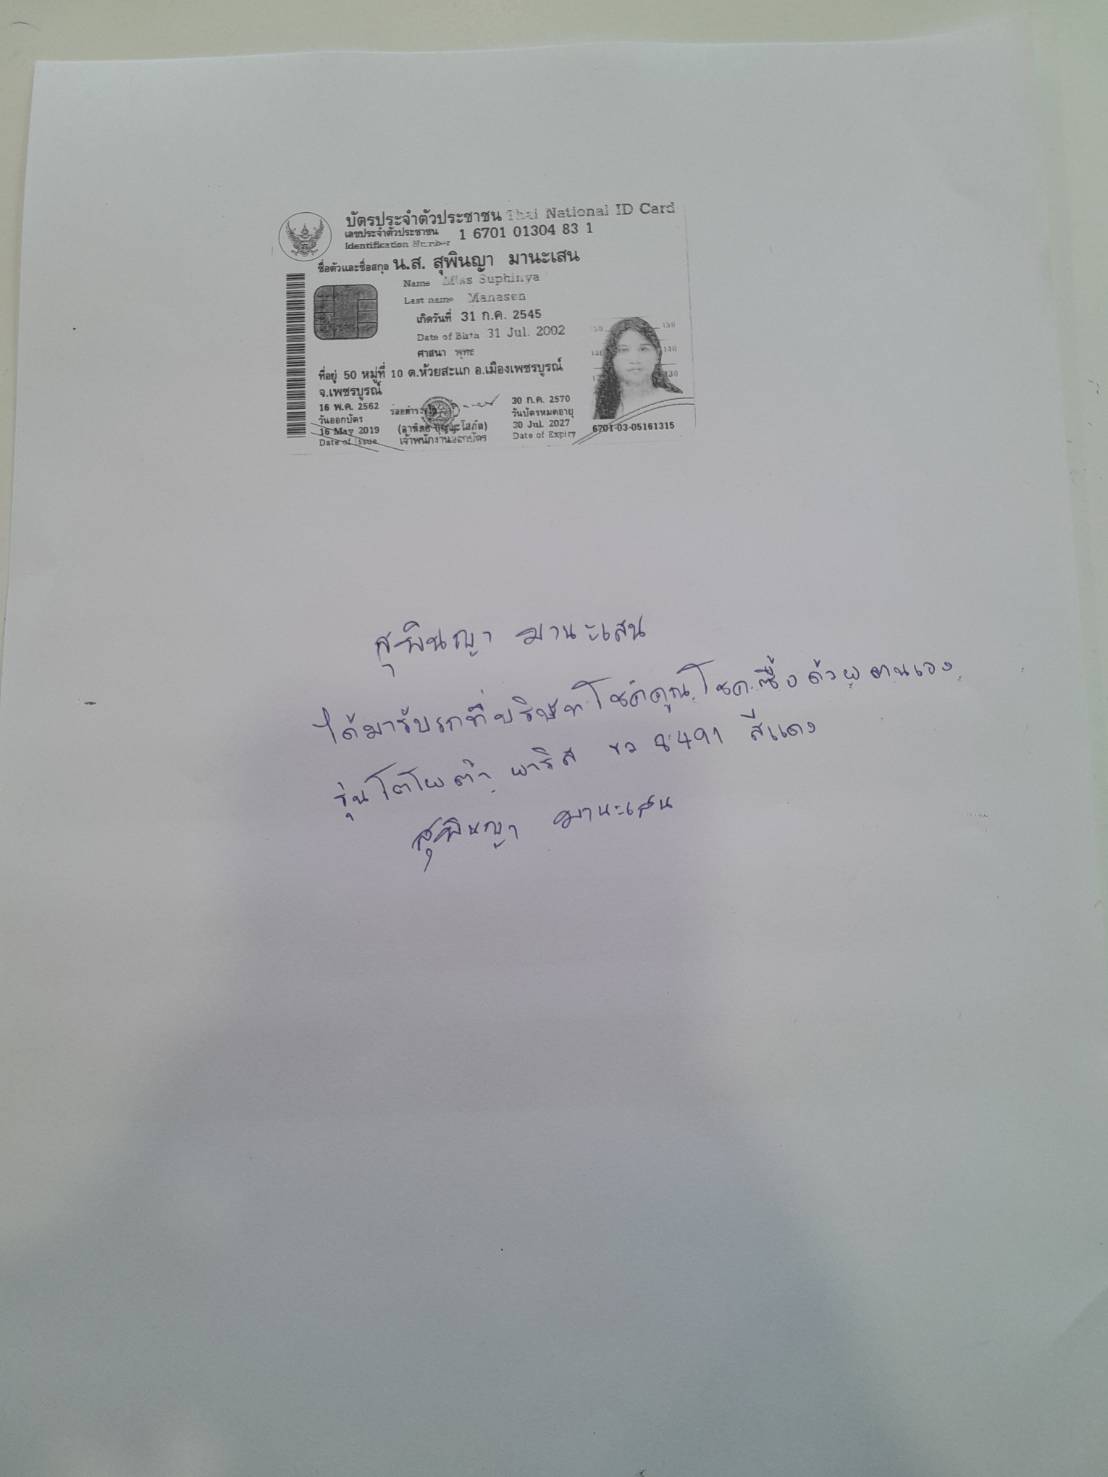 บัตรประจำตัวประชาชน Thai National ID Card
เลขประจำตัวประชาชน 1 6701 01304 83 1
Identification Number
ชื่อตัวและชื่อสกุล น.ส. สุพินญา มานะเสน
Name Miss Suphinya
Last name Manasen
เกิดวันที่ 31 ก.ค. 2545
Date of Birth 31 Jul. 2002
ศาสนา พุทธ
ที่อยู่ 50 หมู่ที่ 10 ต.ห้วยสะแก อ.เมืองเพชรบูรณ์
จ.เพชรบูรณ์
16 พ.ค. 2562
วันออกบัตร
16 May 2019
Date of Issue
เจ้าพนักงานออกบัตร
30 ก.ค. 2570
วันบัตรหมดอายุ
30 Jul. 2027
Date of Expiry
6701-03-05161315
สุพินญา มานะเสน
ได้มารับรถที่บริษัทโชคคูณโชค ซื้อด้วยตนเอง
รุ่นโตโยต้า ยาริส ขว 8491 สีแดง
สุพินญา มานะเสน